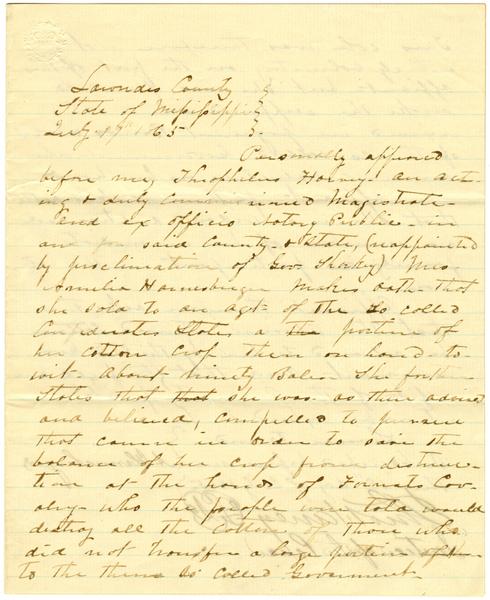 Lowndes County }
State of Mississippi }
July 19 1865 }
Personally appeared
before me, Theophilus Harvey - an act-
ing & duly commissioned Magistrate -
and ex officio Notary Public - in
and for said County - & State, (reappointed
by proclimation of Gov Sharkey) Mrs
Amelia Harnesberger Makes oath - that
she sold to an agt - of the So called
Confederates States a the portion of
her cotton crop then on hand - to-
wit - About ninety Bales - She furth-
States that that she was - as then advised
and believed, compelled to pursue
that course in order to save the
balance of her crop from distruc-
tion at the hands of Forrests Cav-
alry - who the people were told would
destroy all the Cotton of those who
did not transfer a large portion of it
to the then So Called Goverment -